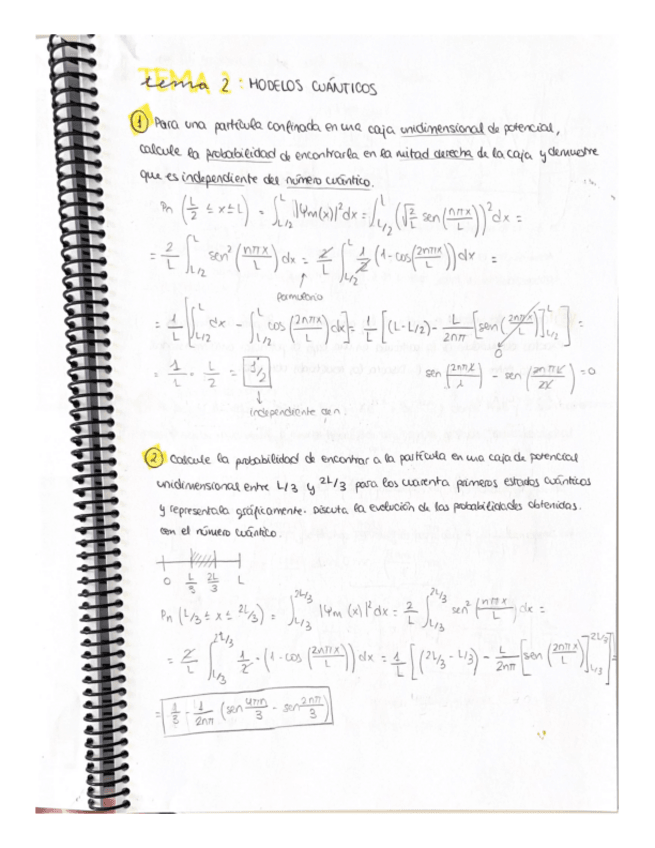 TEMA 2
tema 2: MODELOS CUÁNTICOS
① Para una partícula confinada en una caja unidimensional de potencial,
calcule la probabilidad de encontrarla en la mitad derecha de la caja y demuestre
que es independiente del número cuántico.
Pn (L/2 ≤ x ≤ L) = ∫_{L/2}^{L} |Ψn(x)|² dx = ∫_{L/2}^{L} (√(2/L) sen(nπx/L))² dx =
= 2/L ∫_{L/2}^{L} sen² (nπx/L) dx = 2/L ∫_{L/2}^{L} 1/2 (1-cos(2nπx/L)) dx =
↑
formulario
= 1/L [∫_{L/2}^{L} dx - ∫_{L/2}^{L} cos (2nπx/L) dx] = 1/L [(L-L/2) - L/2nπ [sen(2nπx/L)]_{L/2}^{L}] =
0
= 1/L · L/2 = 1/2
sen (2nπL/L) - sen (2nπL/2L) = 0
↓
independiente de n.
② Calcule la probabilidad de encontrar a la partícula en una caja de potencial
unidimensional entre L/3 y 2L/3 para los cuarenta primeros estados cuánticos
y represéntala gráficamente. Discuta la evolución de las probabilidades obtenidas.
con el número cuántico.
0 L/3 2L/3 L
Pn (L/3 ≤ x ≤ 2L/3) = ∫_{L/3}^{2L/3} |Ψn (x)|² dx = 2/L ∫_{L/3}^{2L/3} sen² (nπx/L) dx =
= 2/L ∫_{L/3}^{2L/3} 1/2 · (1-cos (2nπx/L)) dx = 1/L [(2L/3 - L/3) - L/2nπ [sen (2nπx/L)]_{L/3}^{2L/3}] =
= 1/3 - 1/2nπ (sen 4πn/3 - sen 2nπ/3)